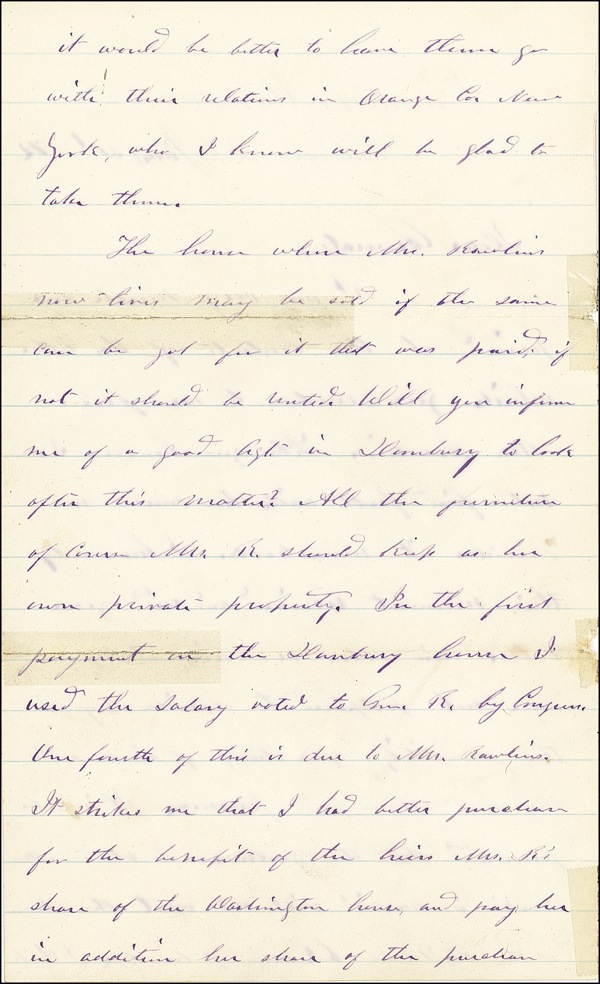 it would be better to leave them go
with their relations in Orange Co. New
York, who I know will be glad to
take them.
The house where Mrs. Rawlins
now lives may be sold if the same
can be got for it that was paid; if
not it should be rented. Will you inform
me of a good Agt. in Danbury to look
after this matter? All the furniture
of course Mrs. R. should keep as her
own private property. In the first
payment on the Danbury house I
used the salary voted to Gen. R. by Congress.
One fourth of this is due to Mrs. Rawlins.
It strikes me that I had better purchase
for the benefit of the heirs Mrs. R's
share of the Washington house, and pay her
in addition her share of the purchase